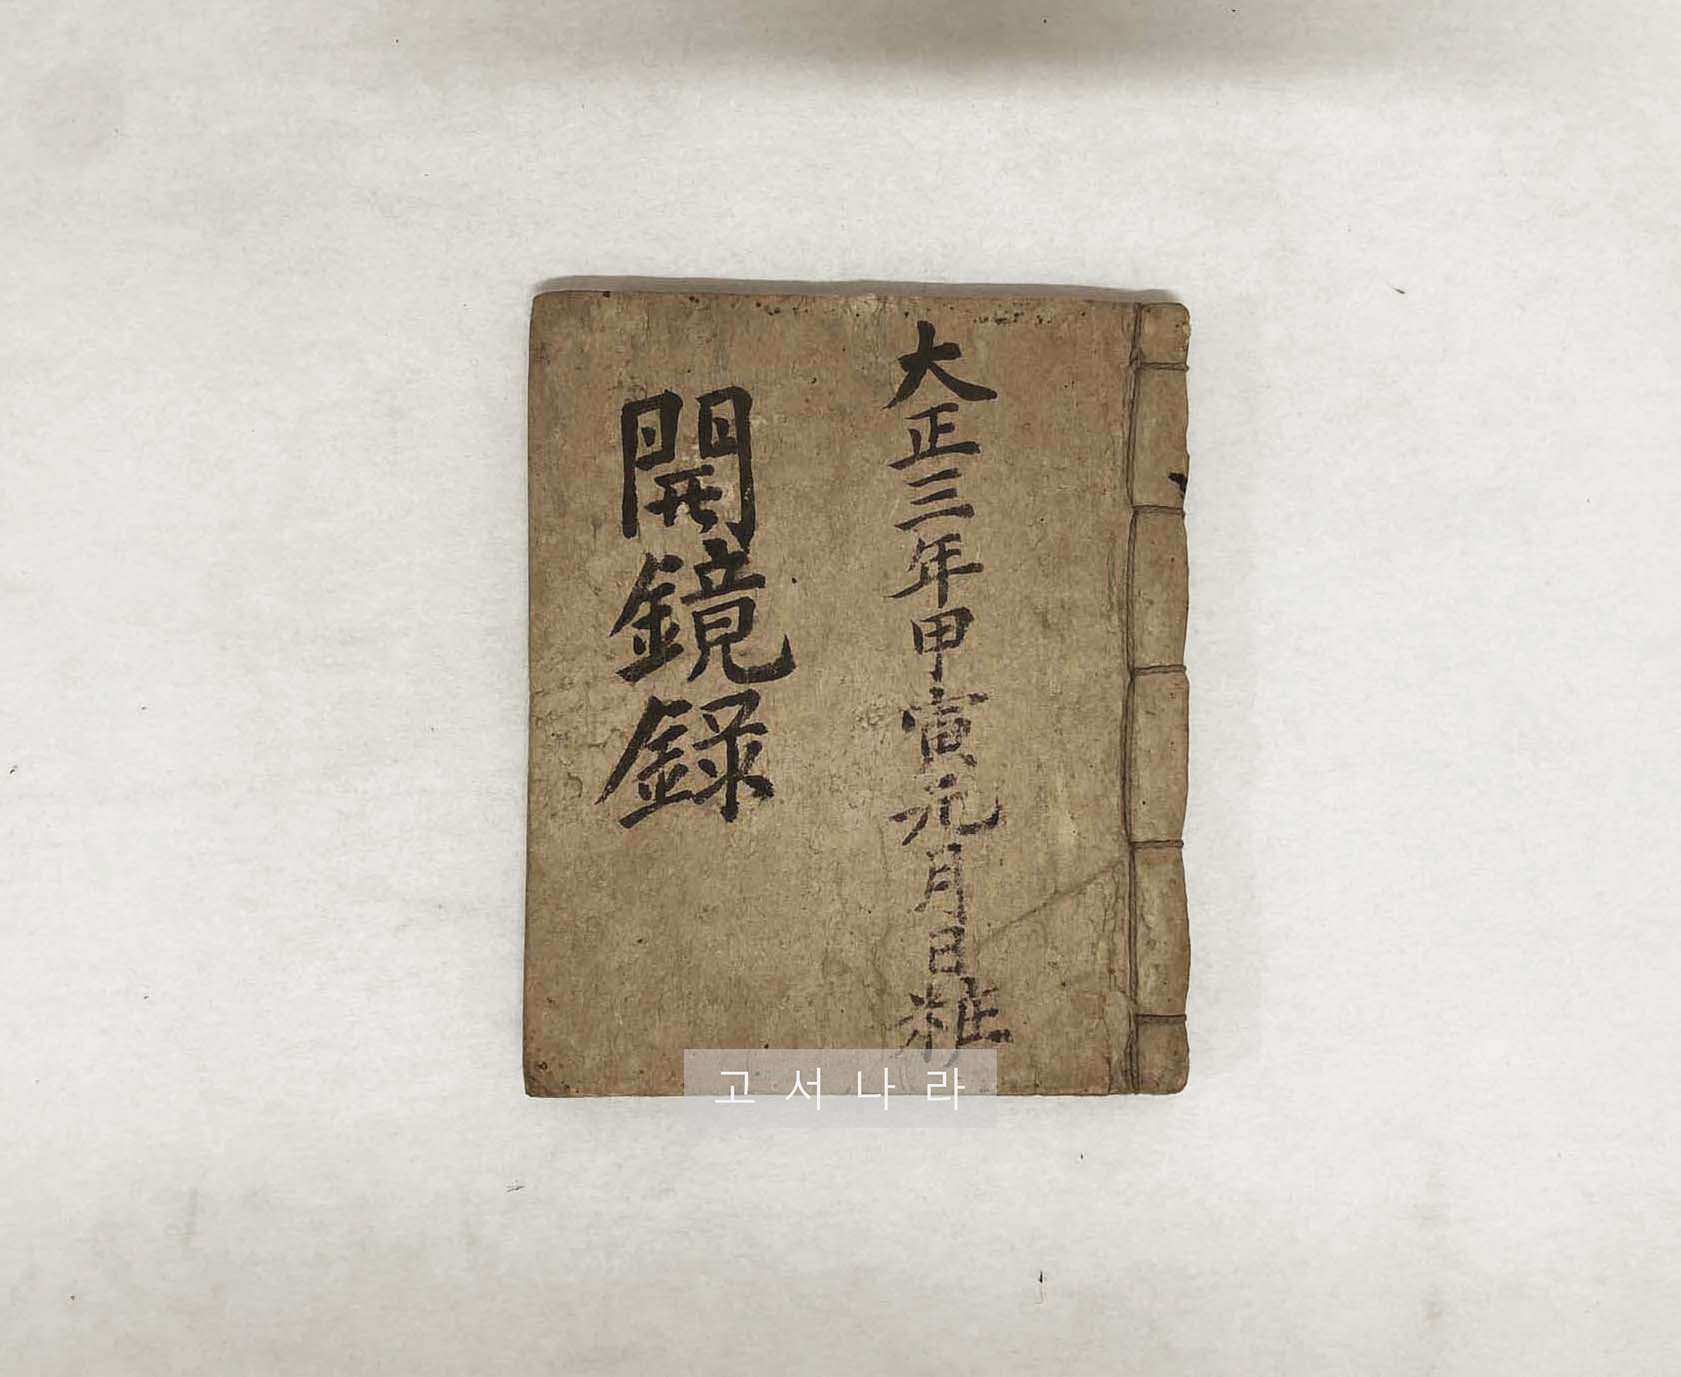 大正三年甲寅元月日粧
開鏡錄
고서나라